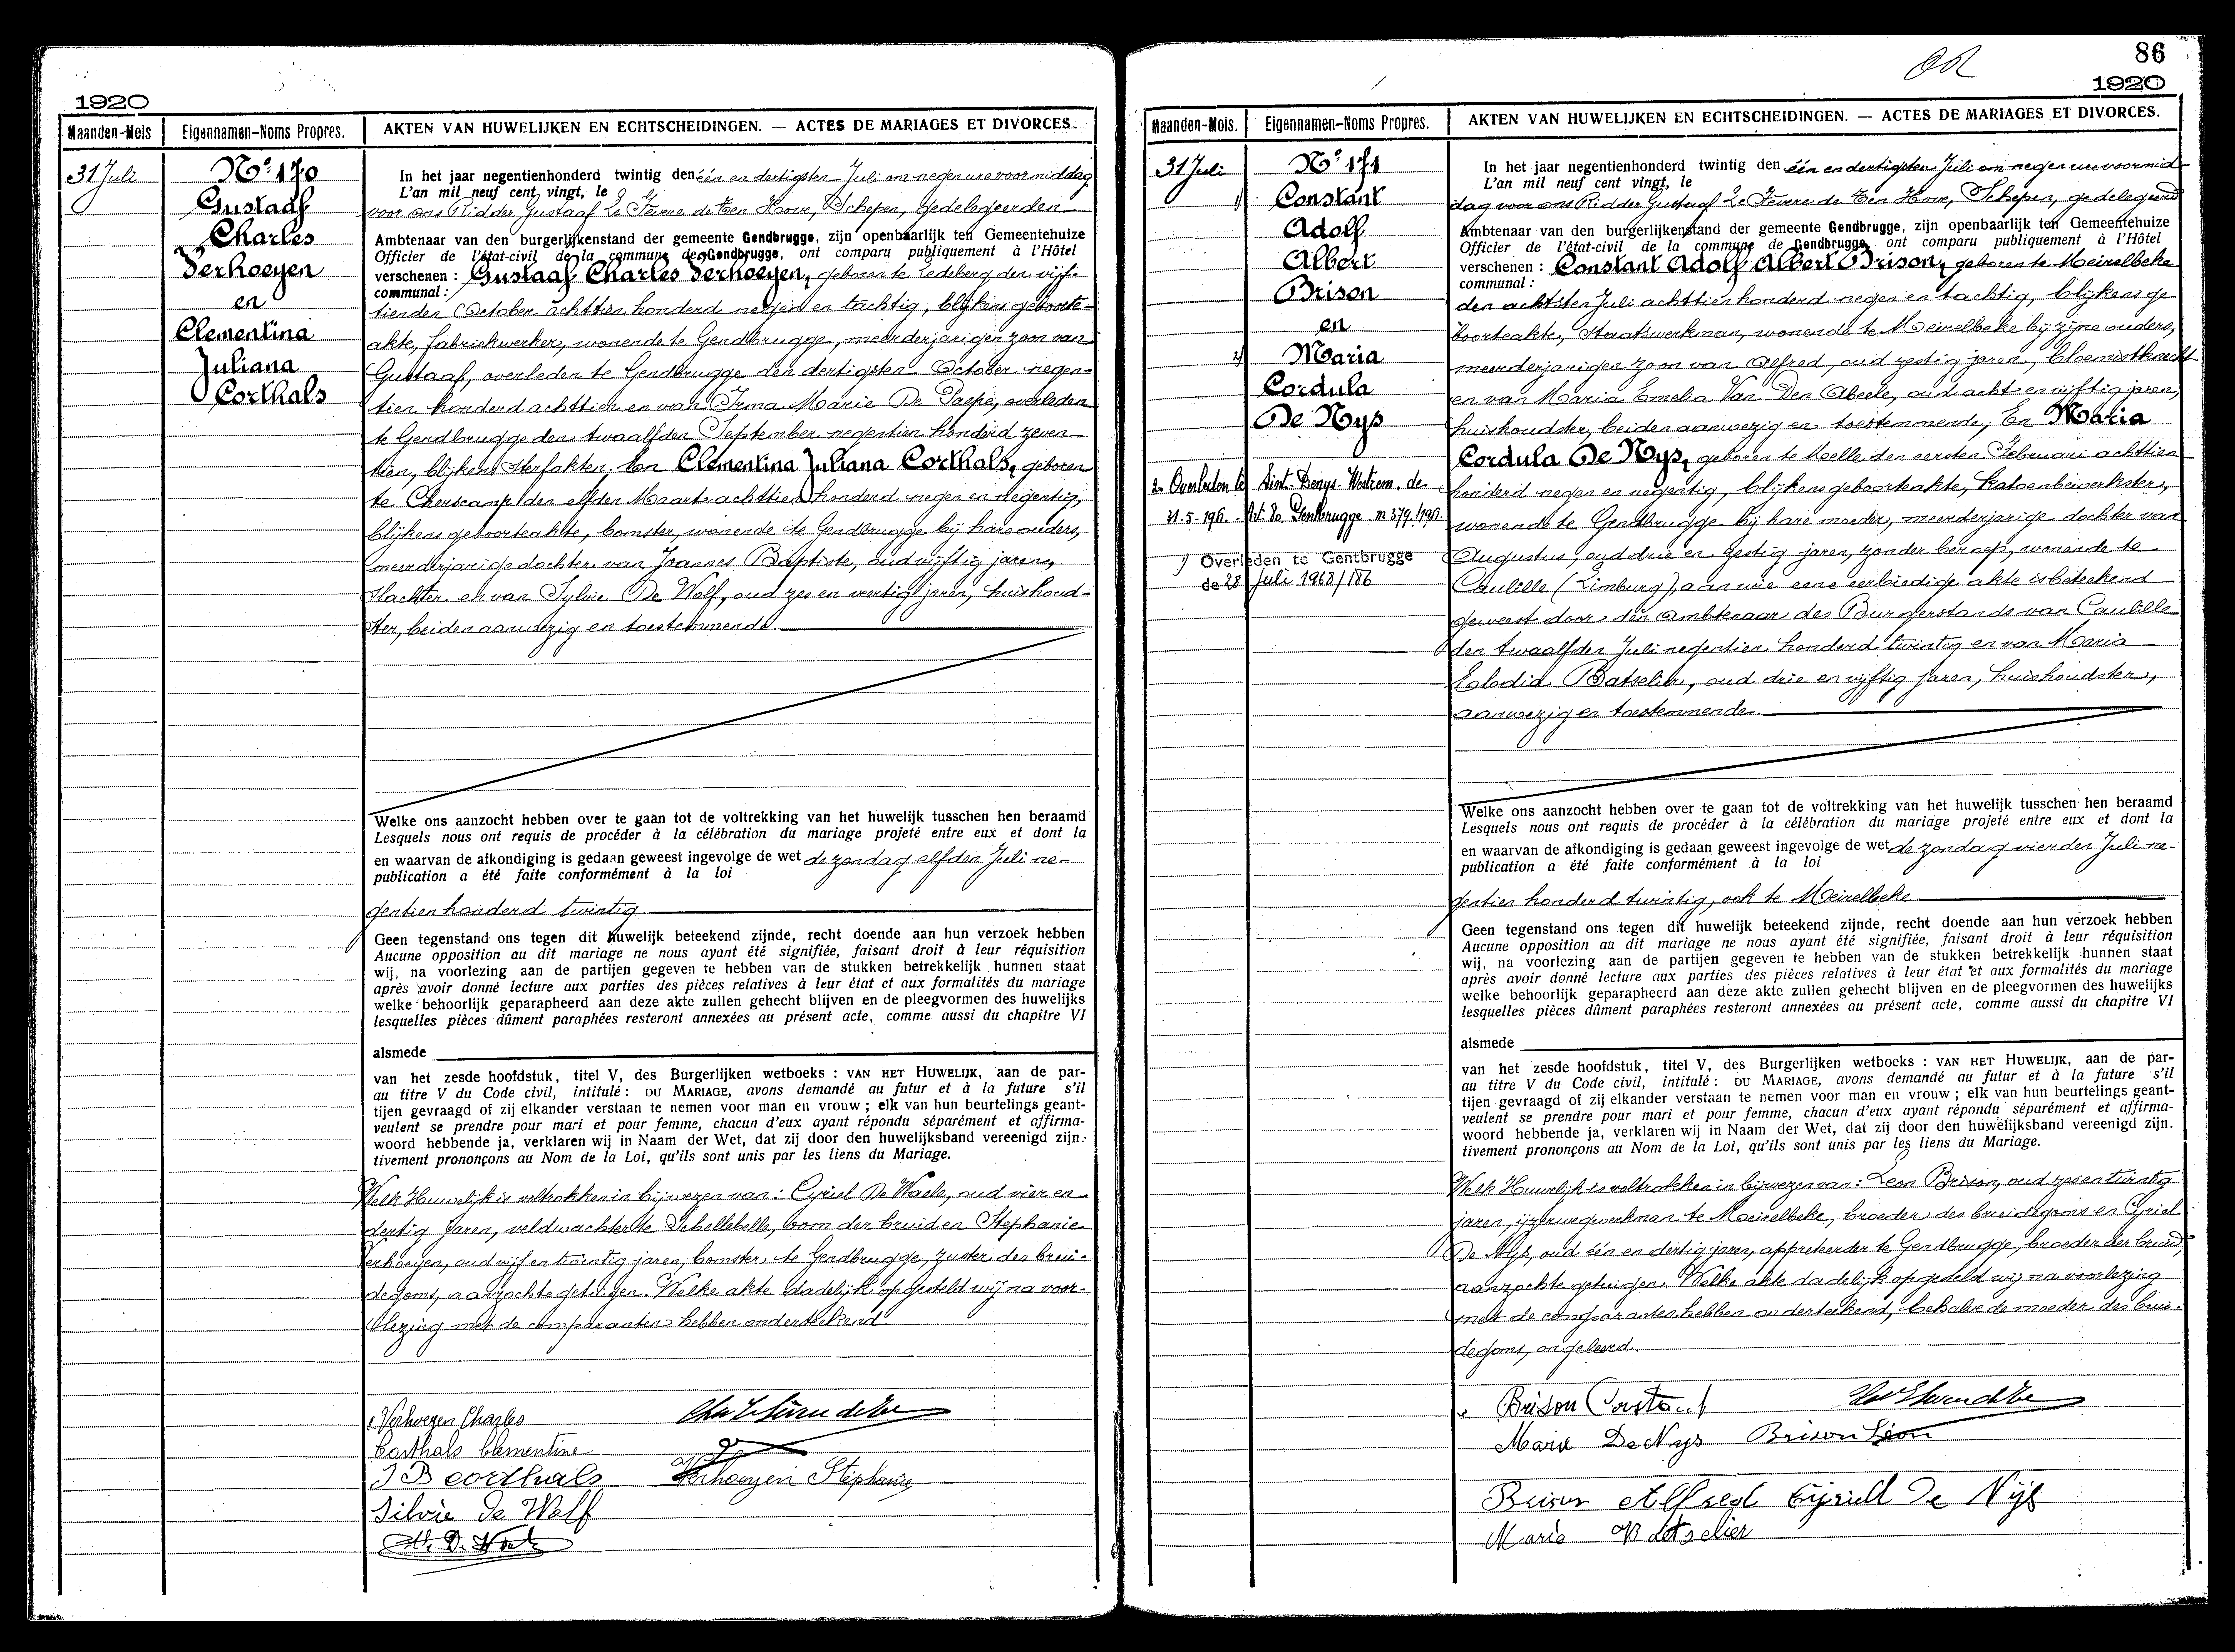 1920
Maanden-Mois
Eigennamen-Noms Propres.
AKTEN VAN HUWELIJKEN EN ECHTSCHEIDINGEN. — ACTES DE MARIAGES ET DIVORCES.
31 Juli
No 170
Gustaaf
Charles
Verhoeyen
en
Clementina
Juliana
Corthals
In het jaar negentienhonderd twintig den één en dertigsten Juli om negen ure voormiddag
L'an mil neuf cent vingt, le
voor ons Ridder Gustaaf Le Fevere de Ten Hove, Schepen, gedelegeerden
Ambtenaar van den burgerlijkenstand der gemeente Gendbrugge, zijn openbaarlijk ten Gemeentehuize
Officier de l'état-civil de la commune de Gendbrugge, ont comparu publiquement à l'Hôtel
verschenen : Gustaaf Charles Verhoeyen, geboren te Ledeberg den vijf-
communal :
tienden October achttien honderd negen en tachtig, blijkens geboorte-
akte, fabriekwerker, wonende te Gendbrugge, meerderjarigen zoon van
Gustaaf, overleden te Gendbrugge den dertigsten October negen-
tien honderd achttien en van Irma Marie De Paepe, overleden
te Gendbrugge den twaalfden September negentien honderd zeven-
tien, blijkens sterfakten. En Clementina Juliana Corthals, geboren
te Cherscamp den elfden Maart achttien honderd negen en negentig,
blijkens geboorteakte, bomster, wonende te Gendbrugge bij hare ouders,
meerderjarige dochter van Joannes Baptiste, oud vijftig jaren,
slachter en van Sylvie De Wolf, oud zes en veertig jaren, huishoud-
ster, beiden aanwezig en toestemmende.
Welke ons aanzocht hebben over te gaan tot de voltrekking van het huwelijk tusschen hen beraamd
Lesquels nous ont requis de procéder à la célébration du mariage projeté entre eux et dont la
en waarvan de afkondiging is gedaan geweest ingevolge de wet de zondag elfden Juli ne-
publication a été faite conformément à la loi
gentien honderd twintig
Geen tegenstand ons tegen dit huwelijk beteekend zijnde, recht doende aan hun verzoek hebben
Aucune opposition au dit mariage ne nous ayant été signifiée, faisant droit à leur réquisition
wij, na voorlezing aan de partijen gegeven te hebben van de stukken betrekkelijk hunnen staat
après avoir donné lecture aux parties des pièces relatives à leur état et aux formalités du mariage
welke behoorlijk geparapheerd aan deze akte zullen gehecht blijven en de pleegvormen des huwelijks
lesquelles pièces dûment paraphées resteront annexées au présent acte, comme aussi du chapitre VI
alsmede
van het zesde hoofdstuk, titel V, des Burgerlijken wetboeks : VAN HET HUWELIJK, aan de par-
au titre V du Code civil, intitulé : DU MARIAGE, avons demandé au futur et à la future s'il
tijen gevraagd of zij elkander verstaan te nemen voor man en vrouw ; elk van hun beurtelings geant-
veulent se prendre pour mari et pour femme, chacun d'eux ayant répondu séparément et affirma-
woord hebbende ja, verklaren wij in Naam der Wet, dat zij door den huwelijksband vereenigd zijn.
tivement prononçons au Nom de la Loi, qu'ils sont unis par les liens du Mariage.
Welk Huwelijk is voltrokken in bijwezen van : Cyriel De Waele, oud vier en
dertig jaren, veldwachter te Schellebelle, oom der bruid en Stephanie
Verhoeyen, oud vijf en twintig jaren, bomster, te Gendbrugge, zuster des brui-
degoms, aanzochte getuigen. Welke akte dadelijk opgesteld wij na voor-
lezing met de comparanten hebben onderteekend.
Verhoeyen Charles
Corthals Clementine
J B Corthals
Verhoeyen Stephanie
Silvie de Wolf
86
1920
Maanden-Mois.
Eigennamen-Noms Propres.
AKTEN VAN HUWELIJKEN EN ECHTSCHEIDINGEN. — ACTES DE MARIAGES ET DIVORCES.
31 Juli
No 171
1/ Constant
Adolf
Albert
Brison
en
2/ Maria
Cordula
De Nys
2. Overleden te Sint-Denys-Westrem, de
31-5-1961. - Art. 80. Gentbrugge nr 379/1961
1/ Overleden te Gentbrugge
de 28 Juli 1968/186
In het jaar negentienhonderd twintig den één en dertigsten Juli om negen ure voormid-
L'an mil neuf cent vingt, le
dag voor ons Ridder Gustaaf Le Fevere de Ten Hove, Schepen, gedelegeerd
Ambtenaar van den burgerlijkenstand der gemeente Gendbrugge, zijn openbaarlijk ten Gemeentehuize
Officier de l'état-civil de la commune de Gendbrugge, ont comparu publiquement à l'Hôtel
verschenen : Constant Adolf Albert Brison, geboren te Meirelbeke
communal :
den achtsten Juli achttien honderd negen en tachtig, blijkens ge
boorteakte, Staatswerkman, wonende te Meirelbeke bij zijne ouders,
meerderjarigen zoon van Alfred, oud zestig jaren, bloemistknecht
en van Maria Emelia Van Den Abeele, oud acht en vijftig jaren,
huishoudster, beiden aanwezig en toestemmende; En Maria
Cordula De Nys, geboren te Melle den eersten Februari achttien
honderd negen en negentig, blijkens geboorteakte, katoenbewerkster,
wonende te Gendbrugge bij hare moeder, meerderjarige dochter van
Augustus, oud drie en zestig jaren, zonder beroep, wonende te
Caulille (Limburg), aan wie eene eerbiedige akte is beteekend
geweest door den Ambtenaar des Burgerstands van Caulille
den twaalfden Juli negentien honderd twintig en van Maria
Elodia Batselier, oud drie en vijftig jaren, huishoudster,
aanwezig en toestemmende.
Welke ons aanzocht hebben over te gaan tot de voltrekking van het huwelijk tusschen hen beraamd
Lesquels nous ont requis de procéder à la célébration du mariage projeté entre eux et dont la
en waarvan de afkondiging is gedaan geweest ingevolge de wet de zondag vierden Juli ne-
publication a été faite conformément à la loi
gentien honderd twintig, ook te Meirelbeke
Geen tegenstand ons tegen dit huwelijk beteekend zijnde, recht doende aan hun verzoek hebben
Aucune opposition au dit mariage ne nous ayant été signifiée, faisant droit à leur réquisition
wij, na voorlezing aan de partijen gegeven te hebben van de stukken betrekkelijk hunnen staat
après avoir donné lecture aux parties des pièces relatives à leur état et aux formalités du mariage
welke behoorlijk geparapheerd aan deze akte zullen gehecht blijven en de pleegvormen des huwelijks
lesquelles pièces dûment paraphées resteront annexées au présent acte, comme aussi du chapitre VI
alsmede
van het zesde hoofdstuk, titel V, des Burgerlijken wetboeks : VAN HET HUWELIJK, aan de par-
au titre V du Code civil, intitulé : DU MARIAGE, avons demandé au futur et à la future s'il
tijen gevraagd of zij elkander verstaan te nemen voor man en vrouw ; elk van hun beurtelings geant-
veulent se prendre pour mari et pour femme, chacun d'eux ayant répondu séparément et affirma-
woord hebbende ja, verklaren wij in Naam der Wet, dat zij door den huwelijksband vereenigd zijn.
tivement prononçons au Nom de la Loi, qu'ils sont unis par les liens du Mariage.
Welk Huwelijk is voltrokken in bijwezen van : Leon Brison, oud zes en twintig
jaren, ijzerwegwerkman te Meirelbeke, broeder des bruidegoms en Cyriel
De Nys, oud één en dertig jaren, appreteerder te Gendbrugge, broeder der bruid,
aanzochte getuigen. Welke akte dadelijk opgesteld wij na voorlezing
met de comparanten hebben onderteekend, behalve de moeder des brui-
degoms, ongeleerd.
Brison Constant
Marie De Nys Brison Léon
Brison Alfred Cyriell De Nijs
Maria Batselier